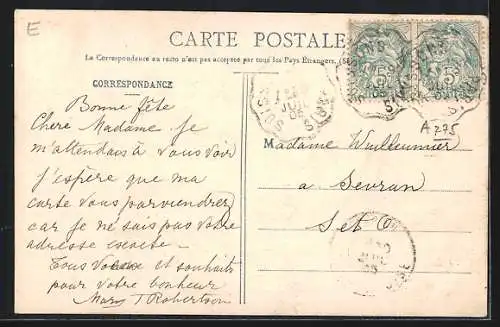 E
CARTE POSTALE
La Correspondance au recto n'est pas acceptée par tous les Pays Étrangers. (S
CORRESPONDANCE
Bonne fête
Chere Madame je
m'attendais à vous voir
j'espère que ma
carte vous parviendrez
car je ne sais pas votre
adresse exacte —
Tous voeux et souhaits
pour votre bonheur
Mary T Robertson
5c 5c
JUIL
05
A 775
Madame Wuilleumier
a Sevran
S et O